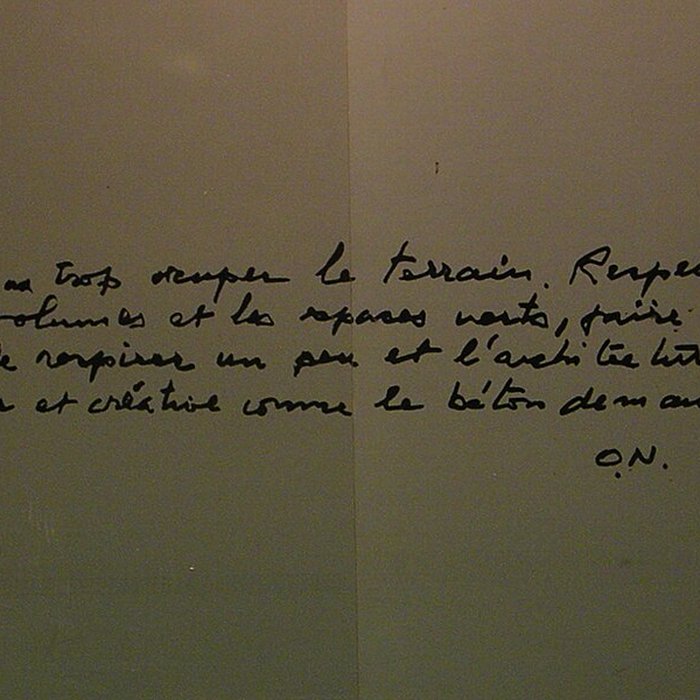 trop occuper le terrain. Respec
volumes et les espaces verts, faire
respirer un peu et l'architectur
et créative comme le béton deman
O.N.